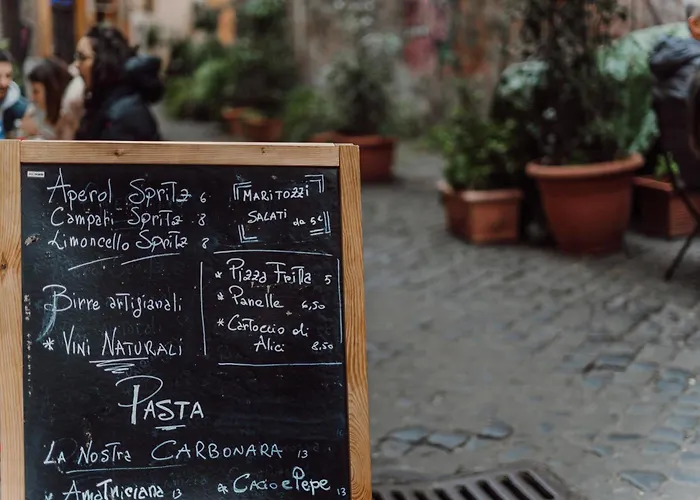 Aperol Spritz 6
Campari Spritz 8
Limoncello Spritz 8
Birre artigianali
* Vini Naturali
Maritozzi
Salati da 5€
* Pizza Fritta 5
* Panelle 6,50
* Cartoccio di
Alici 8.50
Pasta
La Nostra Carbonara 13
* Amatriciana 13
* Cacio e Pepe 13